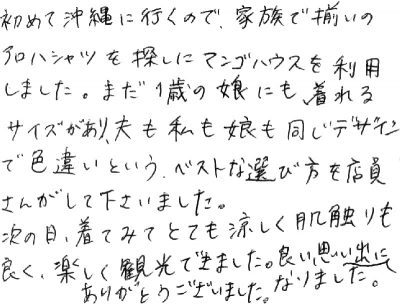 初めて沖縄に行くので、家族で揃いの
アロハシャツを探しにマンゴハウスを利用
しました。まだ1歳の娘にも、着れる
サイズがあり、夫も私も娘も同じデザイン
で色違いという、ベストな選び方を店員
さんがして下さいました。
次の日、着てみてとても涼しく肌触りも
良く、楽しく観光できました。良い思い出に
なりました。
ありがとうございました。